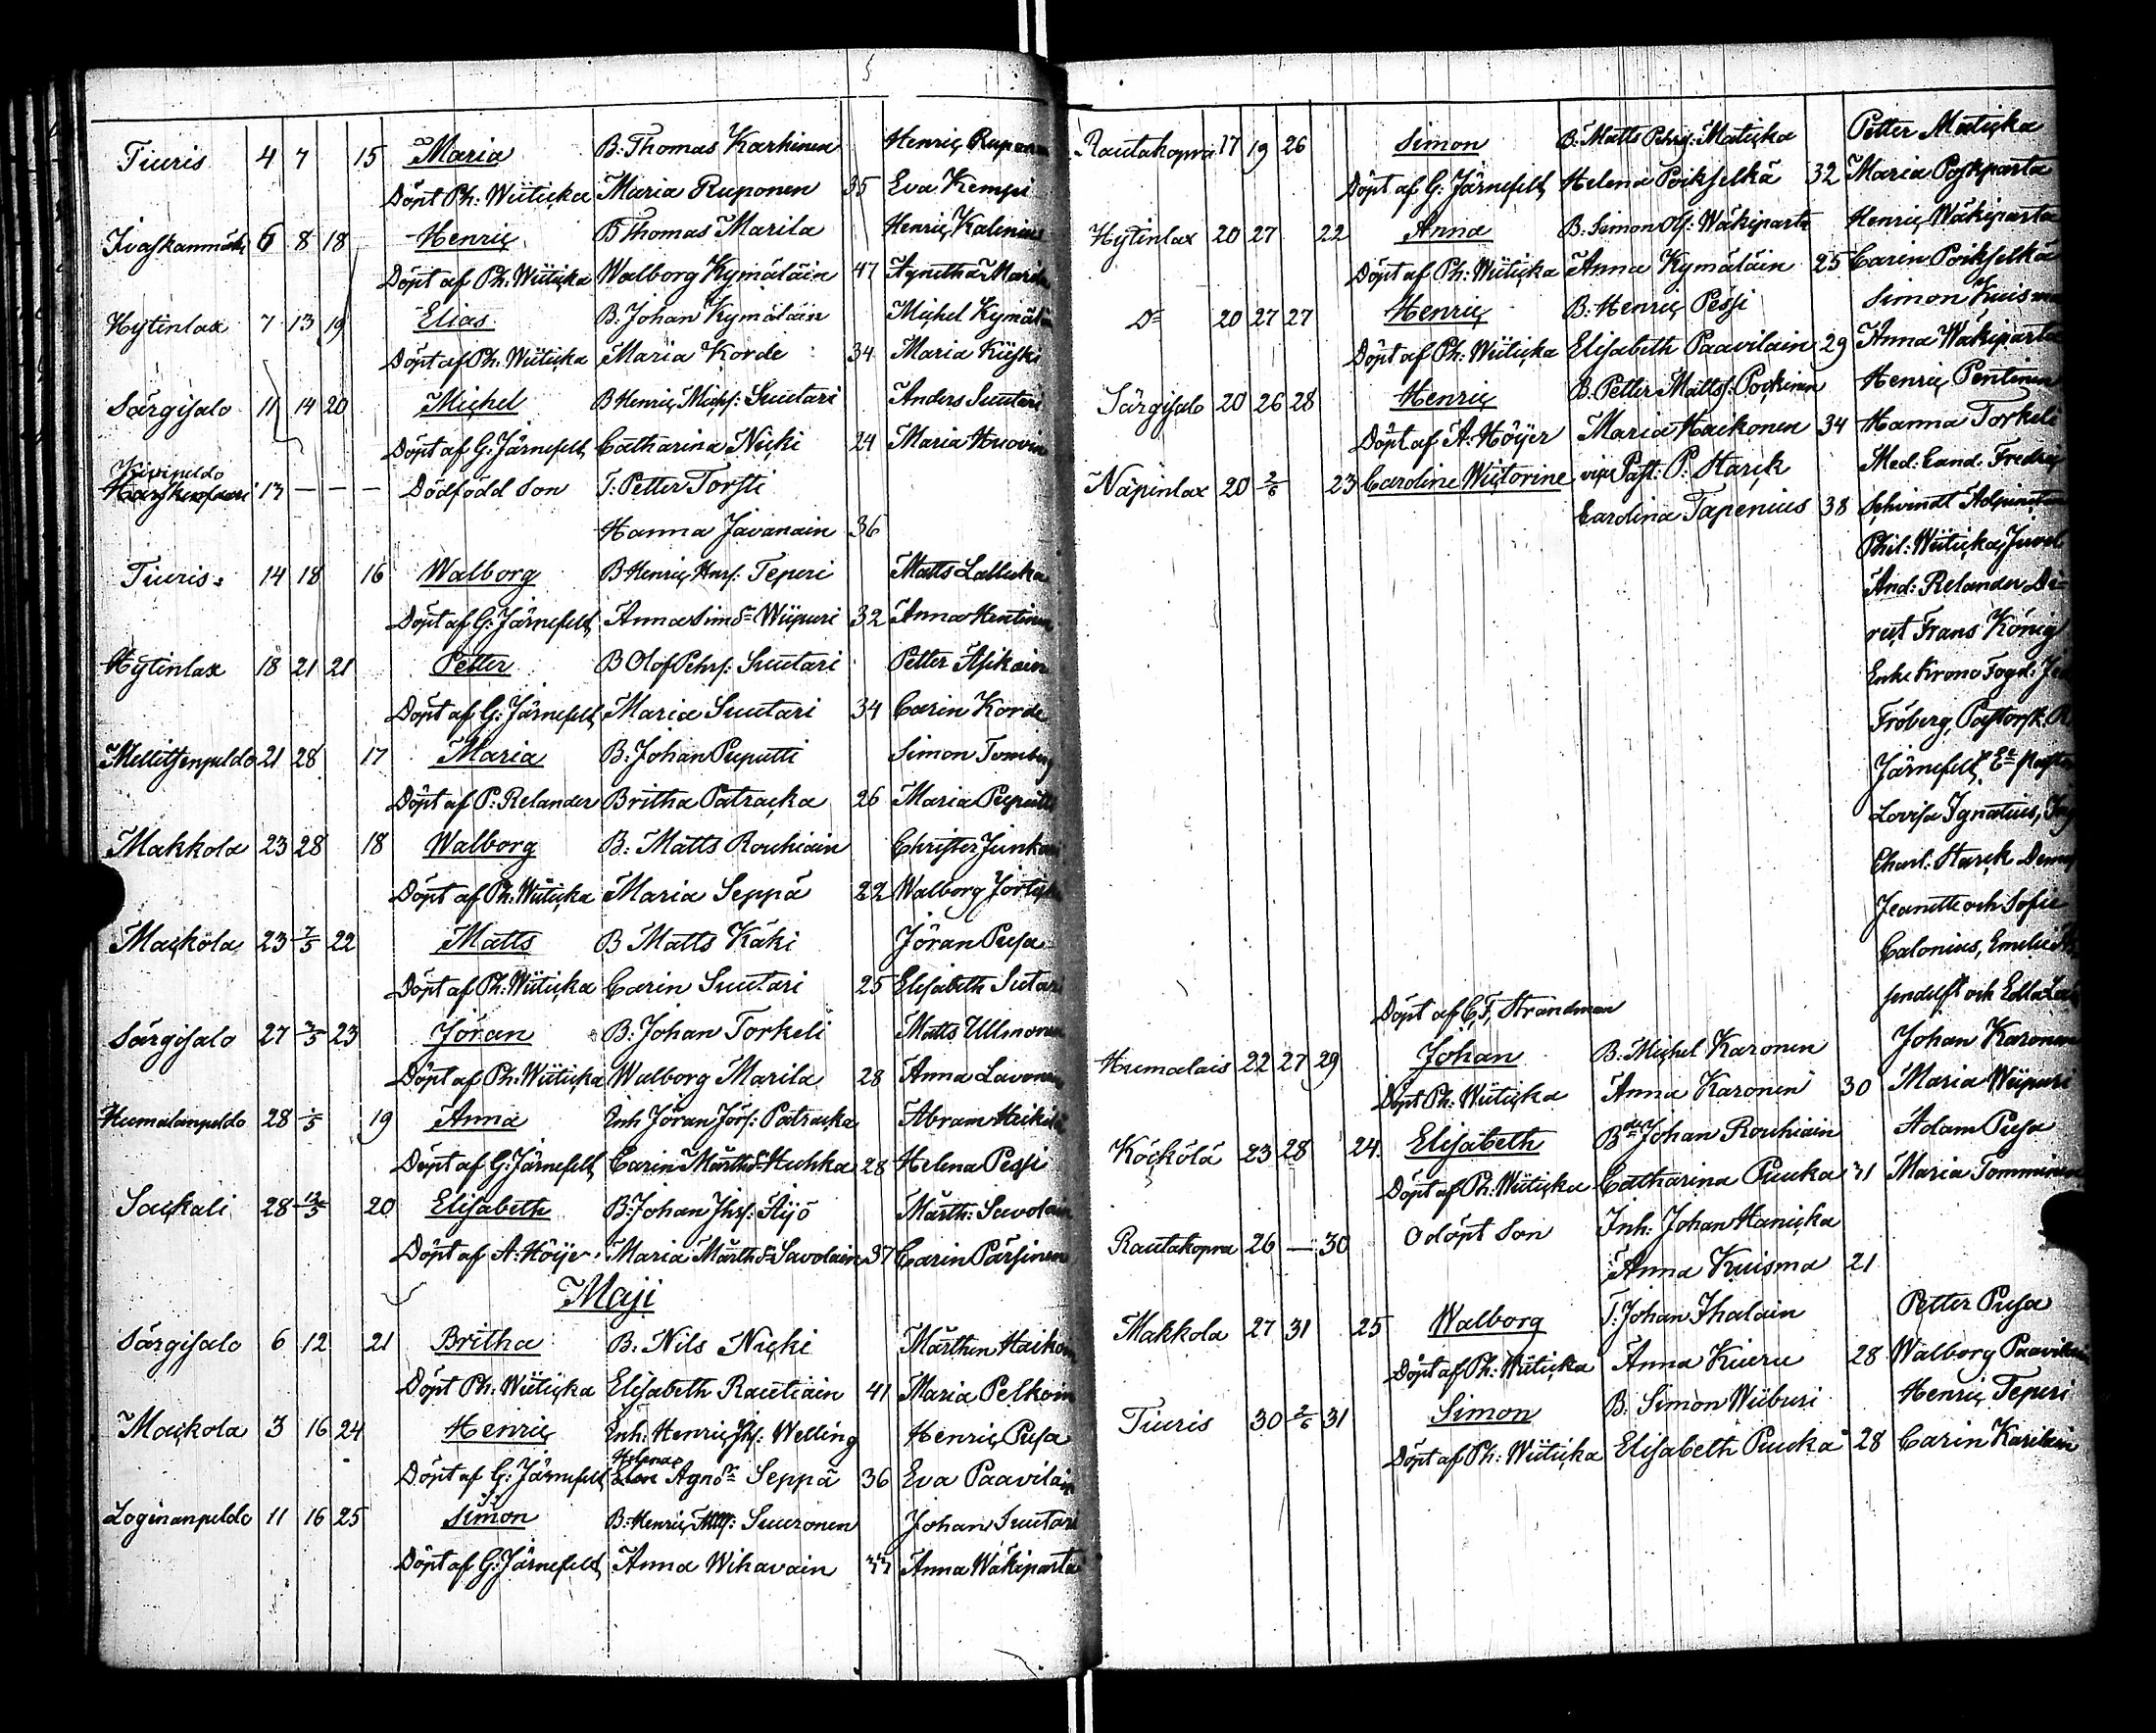 Tiuris 4 7 15 Maria B. Thomas Karhinen Henric Ruponen
Döpt Ph: Wiiticka Maria Ruponen 35 Eva Kemppi
6 8 18 Henric B Thomas Marila Henric Kalinien
Döpt af Ph: Wiiticka Walborg Kymäläin 47 Agnetha Marila
Hytinlax 7 13 19 Elias B. Johan Kymäläin Michel Kymäläin
Döpt af Ph: Wiiticka Maria Korde 34 Maria Kiiski
Särgisalo 11 14 20 Michel B Henric Michs: Suutari Anders Suutari
Döpt af G: Järnefelt Catharina Nicki 24 Maria Huovin
13 — — — Dödfödd Son T: Petter Torsti
Hanna Javanain 36
Tiuris 14 18 16 Walborg B Henric Hnrs: Tepuri Matts Lallucka
Döpt af G: Järnefelt Anna Sims dr Wiipuri 32 Anna
Hytinlax 18 21 21 Petter B Olof Pehrs: Suutari Petter Asikain
Döpt af G: Järnefelt Maria Suutari 34 Carin Korde
Mellitsenpeldo 21 28 17 Maria B: Johan Puputti Simon
Döpt af P: Relander Britha Patracka 26 Maria Puputti
Makkola 23 28 18 Walborg B: Matts Rouhiain Christer Junkari
Döpt af Ph: Wiiticka Maria Seppä 22 Walborg
Mackola 23 2/5 22 Matts B Matts Käki Jöran Pusa
Döpt af Ph: Wiiticka Carin Suutari 25 Elisabeth Sutari
Särgisalo 27 3/5 23 Jöran B: Johan Torkeli Matts Ullmonen
Döpt af Ph: Wiiticka Walborg Marila 28 Anna Lavonen
Humalanpeldo 28 1/5 19 Anna Inh Jöran Jörs: Patracka Abram Heikilä
Döpt af G: Järnefelt Carin Mårths dr Huhka 28 Helena Pessi
Sackali 28 12/5 20 Elisabeth B: Johan Jhs: Äijö Mårth: Savolain
Döpt af A: Höije Maria Mårths dr Savolain 37 Carin Pärsinen
Maji
Särgisalo 6 12 21 Britha B. Nils Nicki Mårthen Haikoin
Döpt Ph: Wiiticka Elisabeth Rautiain 41 Maria Pelkoin
Mackola 3 16 24 Henric Inh: Henric Jhs: Welling Henric Pusa
Döpt af G: Järnefelt Helena Agns dr Seppä 36 Eva Paavilain
Loginanpeldo 11 16 25 Simon B: Henric Suuronen Johan Suutari
Döpt af G: Järnefelt Anna Wihavain 33 Anna Wäkiparta
Rautakopra 17 19 26 Simon B. Matts Pehrs: Maticka Petter Maticka
Döpt af G: Järnefelt Helena Poikselkä 32 Maria Poskparta
Hytinlax 20 27 22 Anna B. Simon Ols: Wäkiparta Henric Wäkiparta
Döpt af Ph: Wiiticka Anna Kymäläin 25 Carin Poikselkä
Do 20 27 27 Henric B: Henric Pessi Simon Kuisma
Döpt af Ph: Wiiticka Elisabeth Paavilain 29 Anna Wäkiparta
Särgisalo 20 26 28 Henric B. Petter Matts: Pockinen Henric Pentinen
Döpt af A: Höijer Maria Haikonen 34 Hanna Torkeli
Näpinlax 20 2/6 23 Caroline Wictorine vice Past: P: Harck Med: Cand. Fredric
Carolina Tapenius 38 Schvindt Adjuncten
Phil: Wiiticka,
And: Relander
Frans König
Enke Krono Fogd:
Fröberg,
Järnefelt,
Lovisa Ignatius,
Charl: Harck
Jeanette och Sofie
Calonius, Emelie
och Edla
Döpt af C. F. Strandman
Humalais 22 27 29 Johan B. Michel Karonen Johan Karonen
Döpt Ph: Wiiticka Anna Karonen 30 Maria Wiipuri
Köckölä 23 28 24 Elisabeth Bde Johan Rouhiain Adam Pusa
Döpt af Ph: Wiiticka Catharina Puuka 31 Maria Tomminen
Rautakopra 26 — 30 Odöpt Son Inh: Johan Hanicka
Anna Kuisma 21
Makkola 27 31 25 Walborg T: Johan Ihalain Petter Pusa
Döpt af Ph: Wiiticka Anna Kiuru 28 Walborg Paavilain
Tiuris 30 2/6 31 Simon B. Simon Wiiburi Henric Tepuri
Döpt af Ph: Wiiticka Elisabeth Puuka 28 Carin Karilain